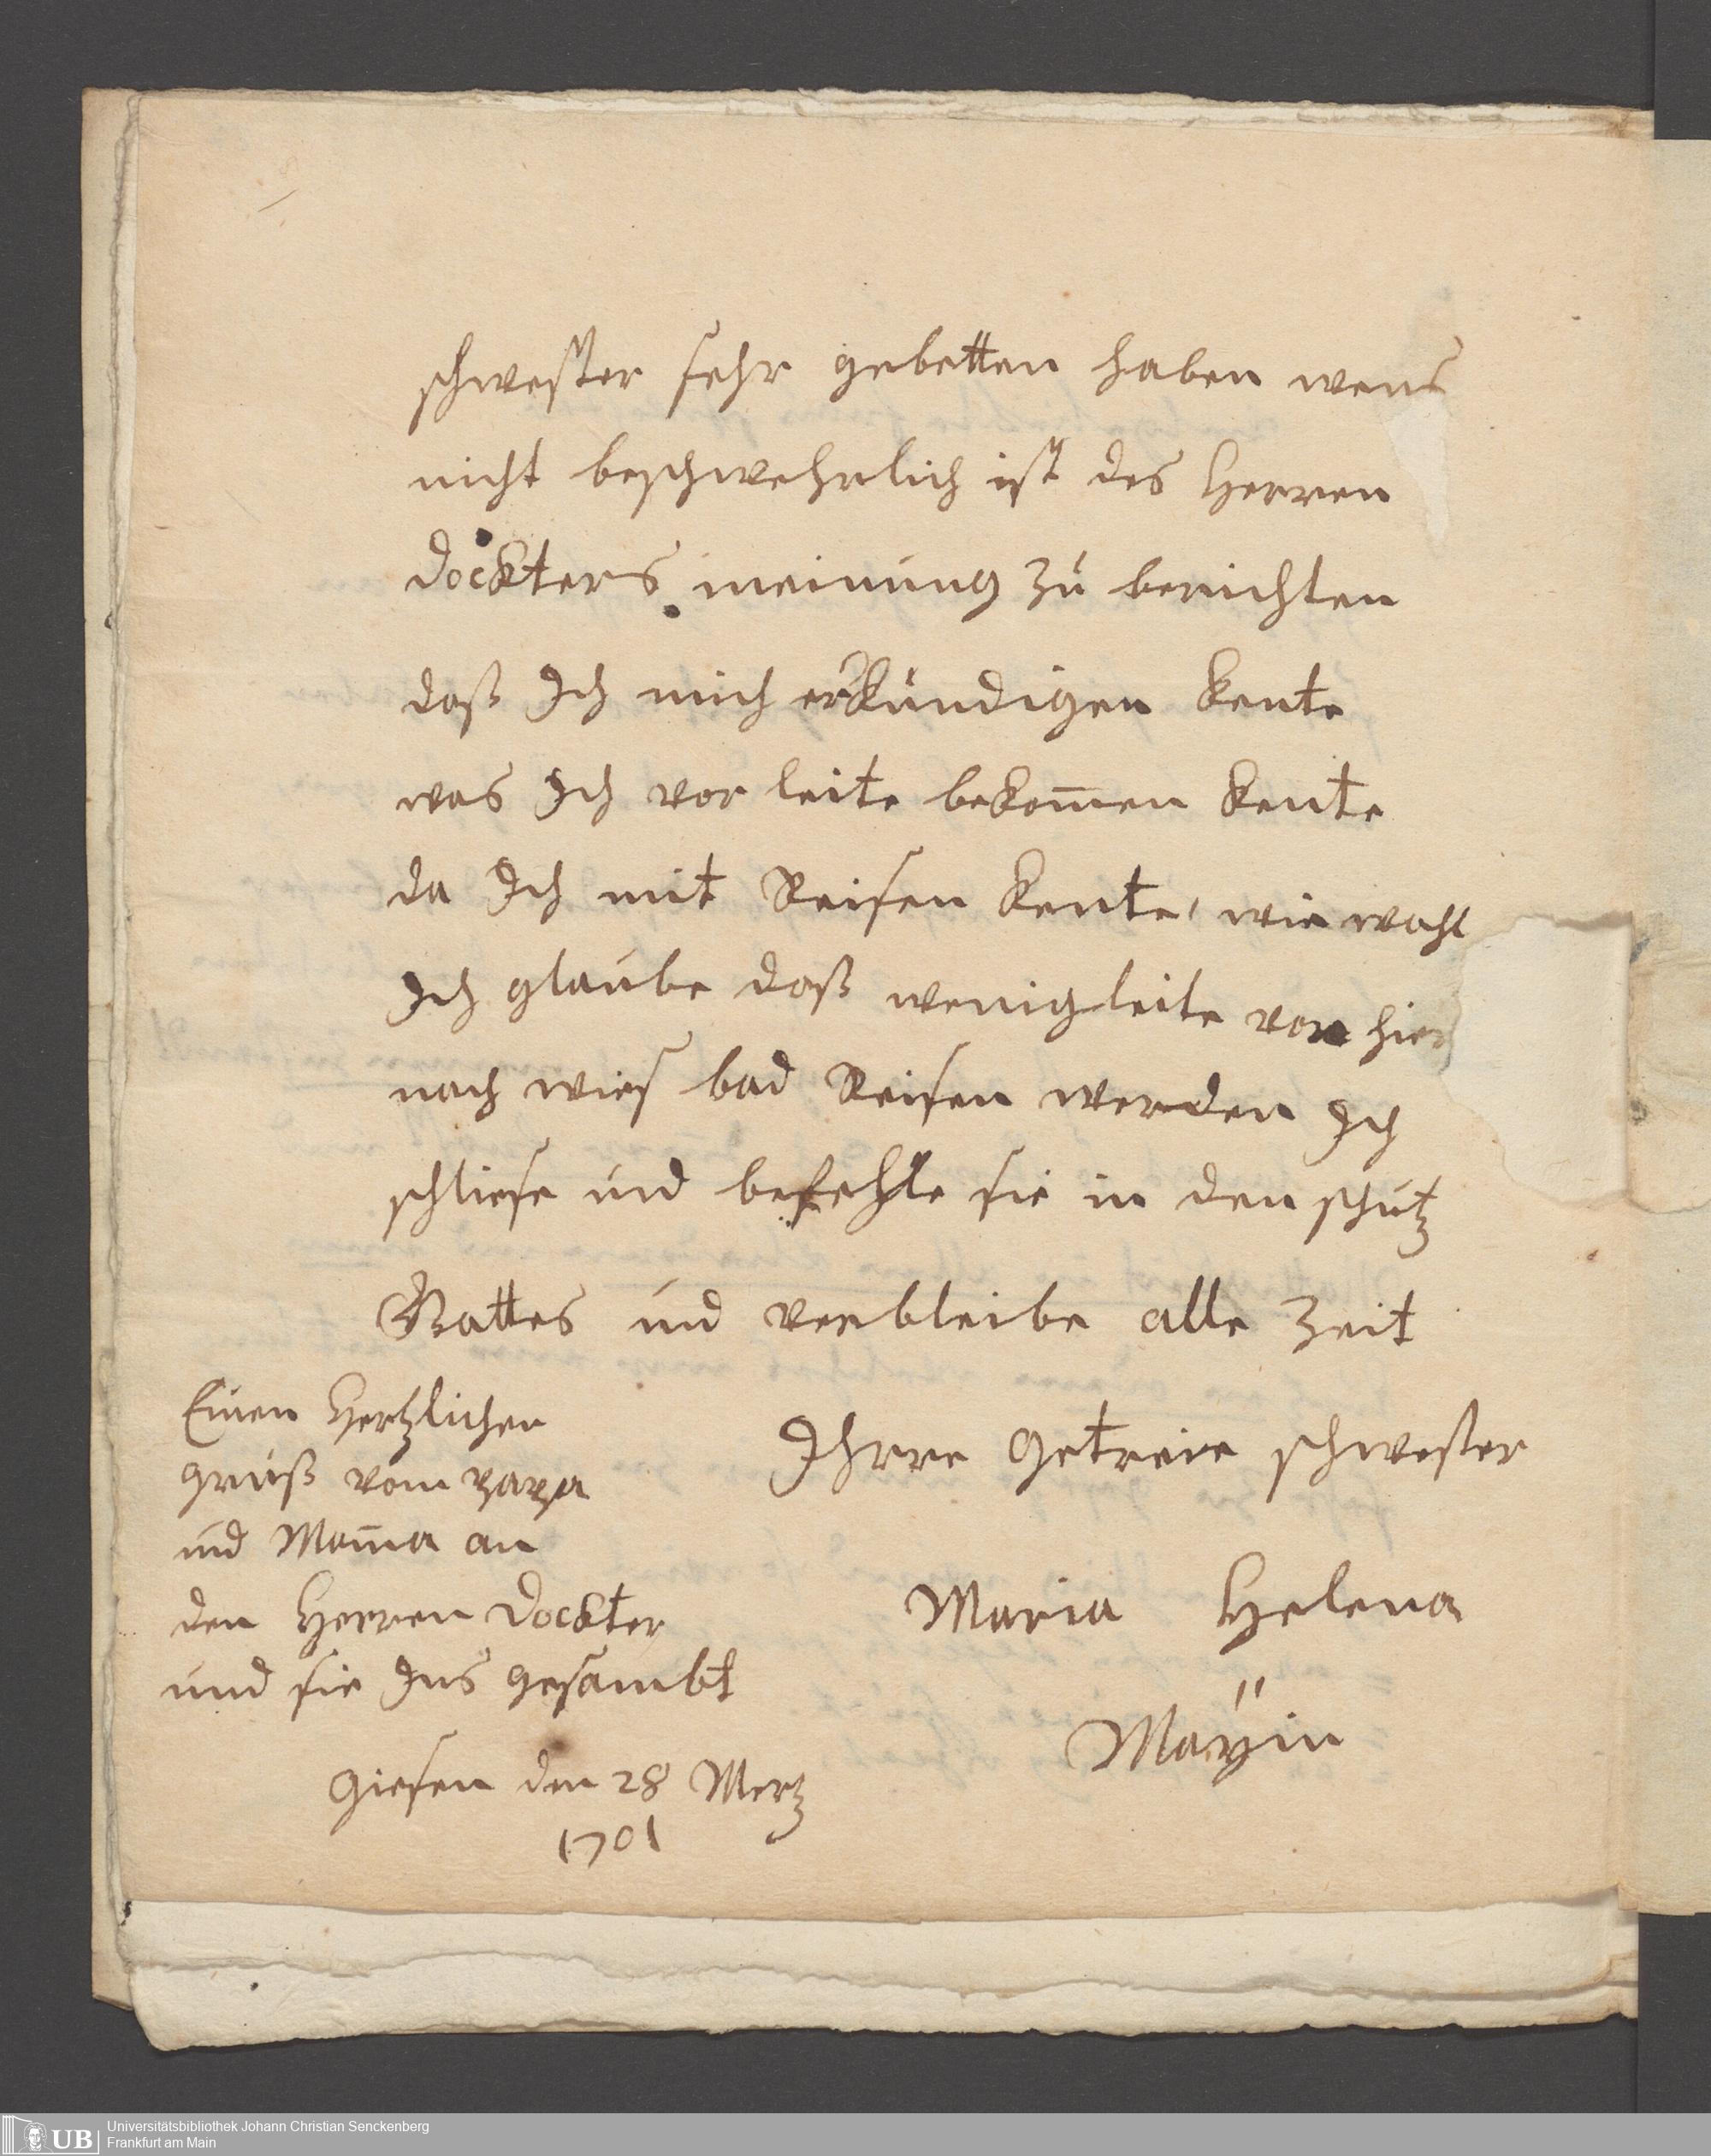 schwester sehr gebetten haben wens
nicht beschwehrlich ist des Herren
dockters meinung zu berichten
daß Ich mich erkundigen kente
was Ich vor leite bekom̄en kente
da Ich mit Reisen kente, wie wohl
Ich glaube daß wenig leite von hier
nach wies bad Reisen werden Ich
schliese und befehle sie in den schutz
Gottes und verbleibe alle Zeit
Ihrre getreie schwester
Maria Helena
Maÿin
Einen Hertzlichen
gruß vom papa
und Mam̄a an
den Herren Dockter
und sie Ins gesambt
Giesen den 28 Mertz
1701
UB
Universitätsbibliothek Johann Christian Senckenberg
Frankfurt am Main